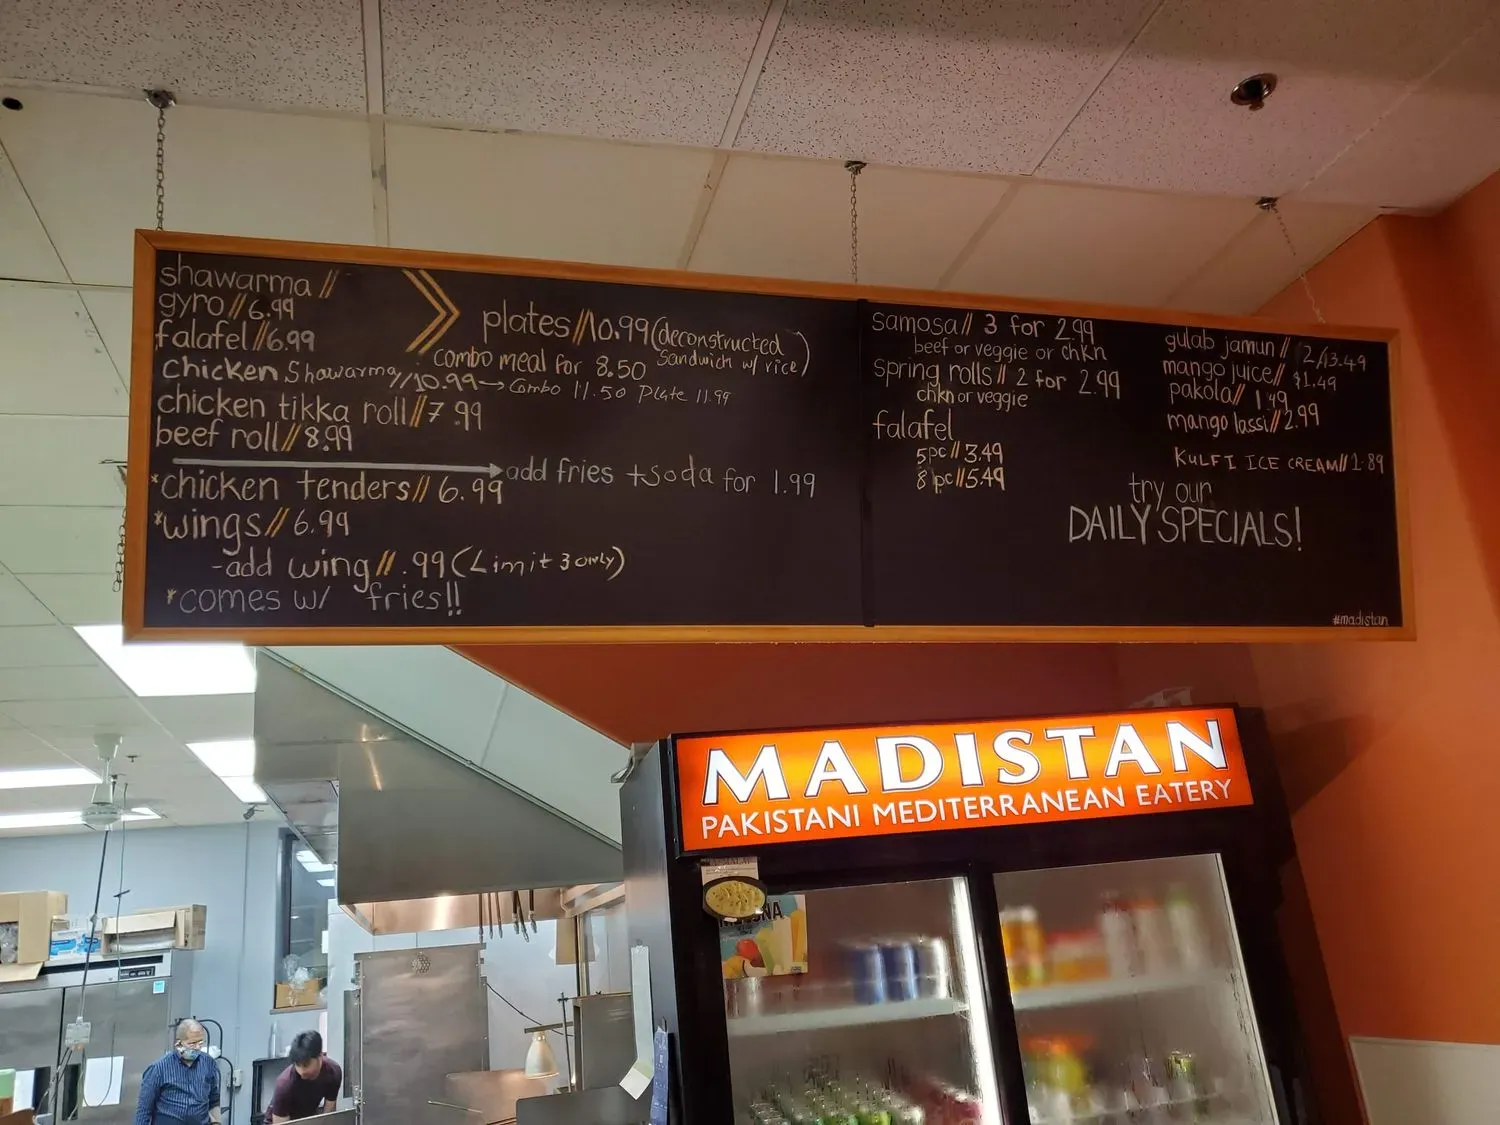 shawarma //
gyro // 6.99
falafel // 6.99
plates // 10.99 (deconstructed
sandwich w/ rice)
combo meal for 8.50
chicken Shawarma // 10.99 → Combo 11.50 Plate 11.99
chicken tikka roll // 7.99
beef roll // 8.99
add fries + soda for 1.99
*chicken tenders // 6.99
*wings // 6.99
-add wing // .99 (Limit 3 only)
*comes w/ fries!!
samosa // 3 for 2.99
beef or veggie or chkn
spring rolls // 2 for 2.99
chkn or veggie
falafel
5pc // 3.49
8 pc // 5.49
gulab jamun // 2/13.49
mango juice // $1.49
pakola // 1.49
mango lassi // 2.99
KULFI ICE CREAM // 1.89
try our
DAILY SPECIALS!
#madistan
MADISTAN
PAKISTANI MEDITERRANEAN EATERY